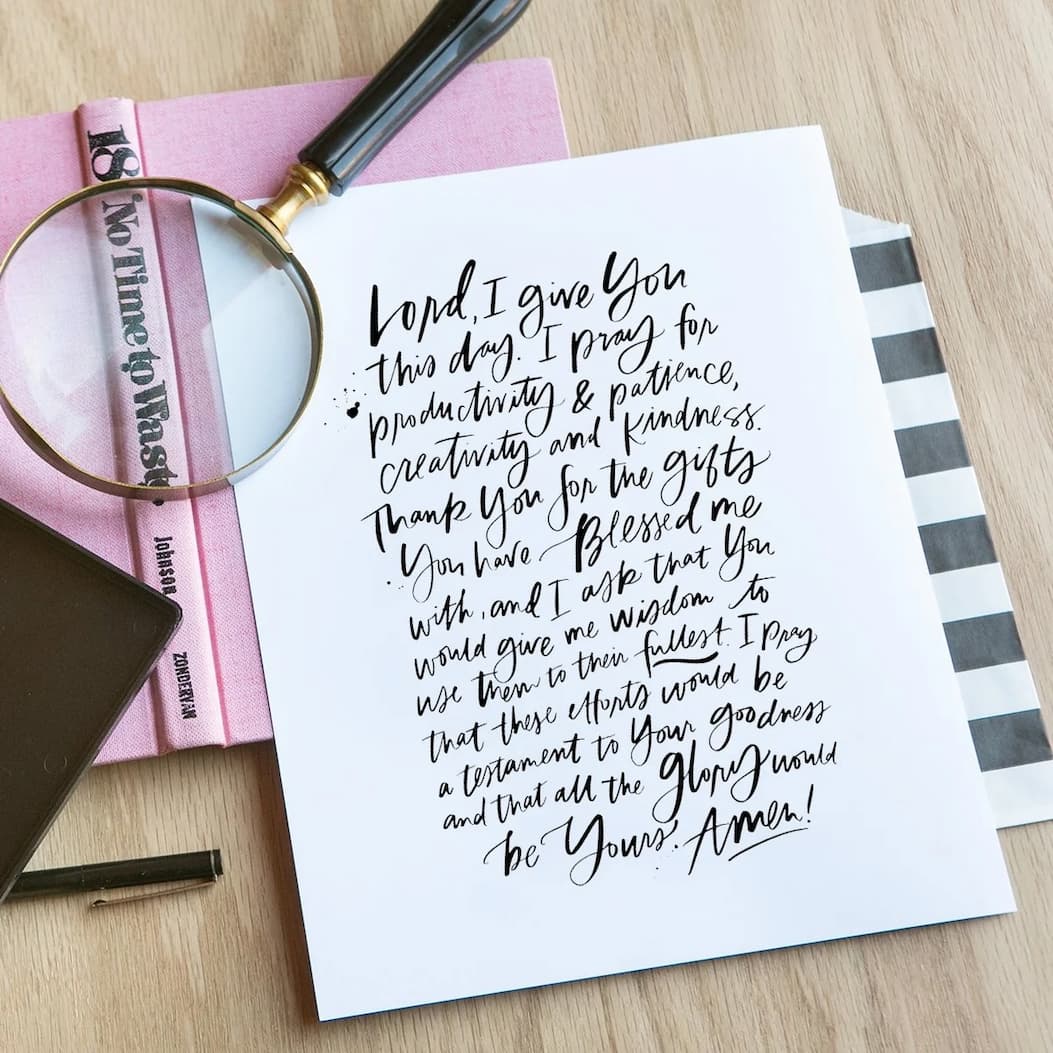 18, No Time to Waste.
Johnson
ZONDERVAN
Lord, I give You
this day. I pray for
productivity & patience,
creativity and kindness.
Thank You for the gifts
You have Blessed me
with, and I ask that You
would give me wisdom to
use them to their fullest. I pray
that these efforts would be
a testament to Your goodness
and that all the glory would
be Yours. Amen!